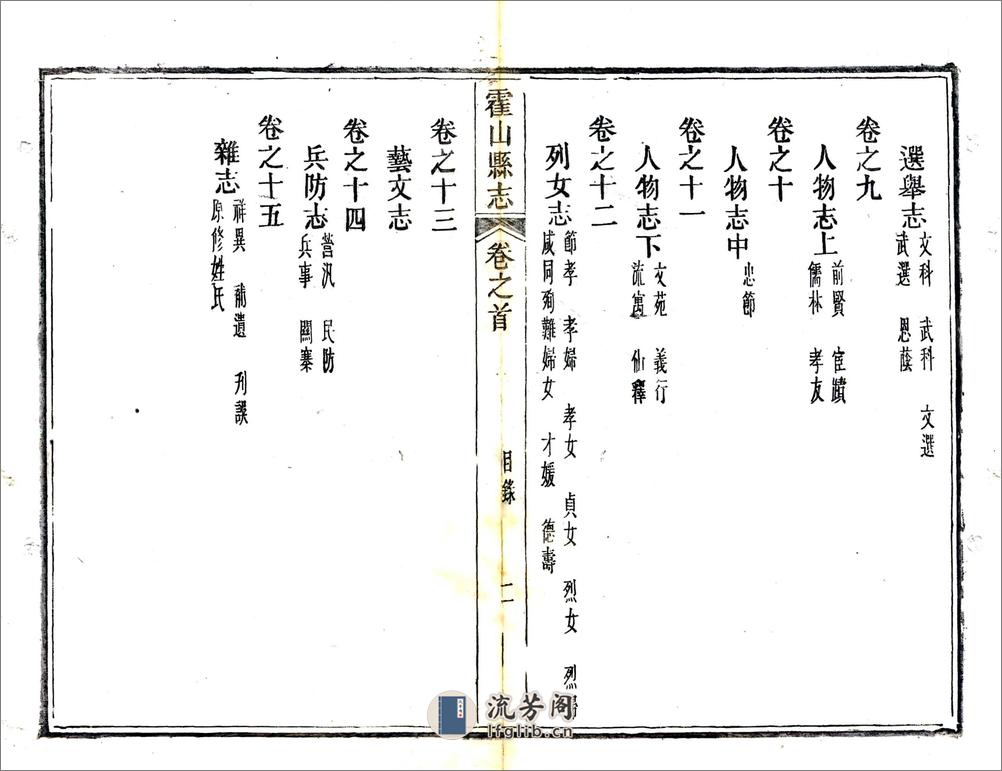 選舉志 文科 武科 文選 武選 恩蔭
卷之九
人物志上 前賢 宦蹟 儒林 孝友
卷之十
人物志中 忠節
卷之十一
人物志下 文苑 義行 流寓 仙釋
卷之十二
列女志 節孝 孝婦 孝女 貞女 烈女 烈婦 咸同殉難婦女 才媛 德壽
霍山縣志 卷之首 目錄 二
卷之十三
藝文志
卷之十四
兵防志 營汛 民防 兵事 關寨
卷之十五
雜志 祥異 補遺 刋誤 原修姓氏
流芳阁
lfglib.cn